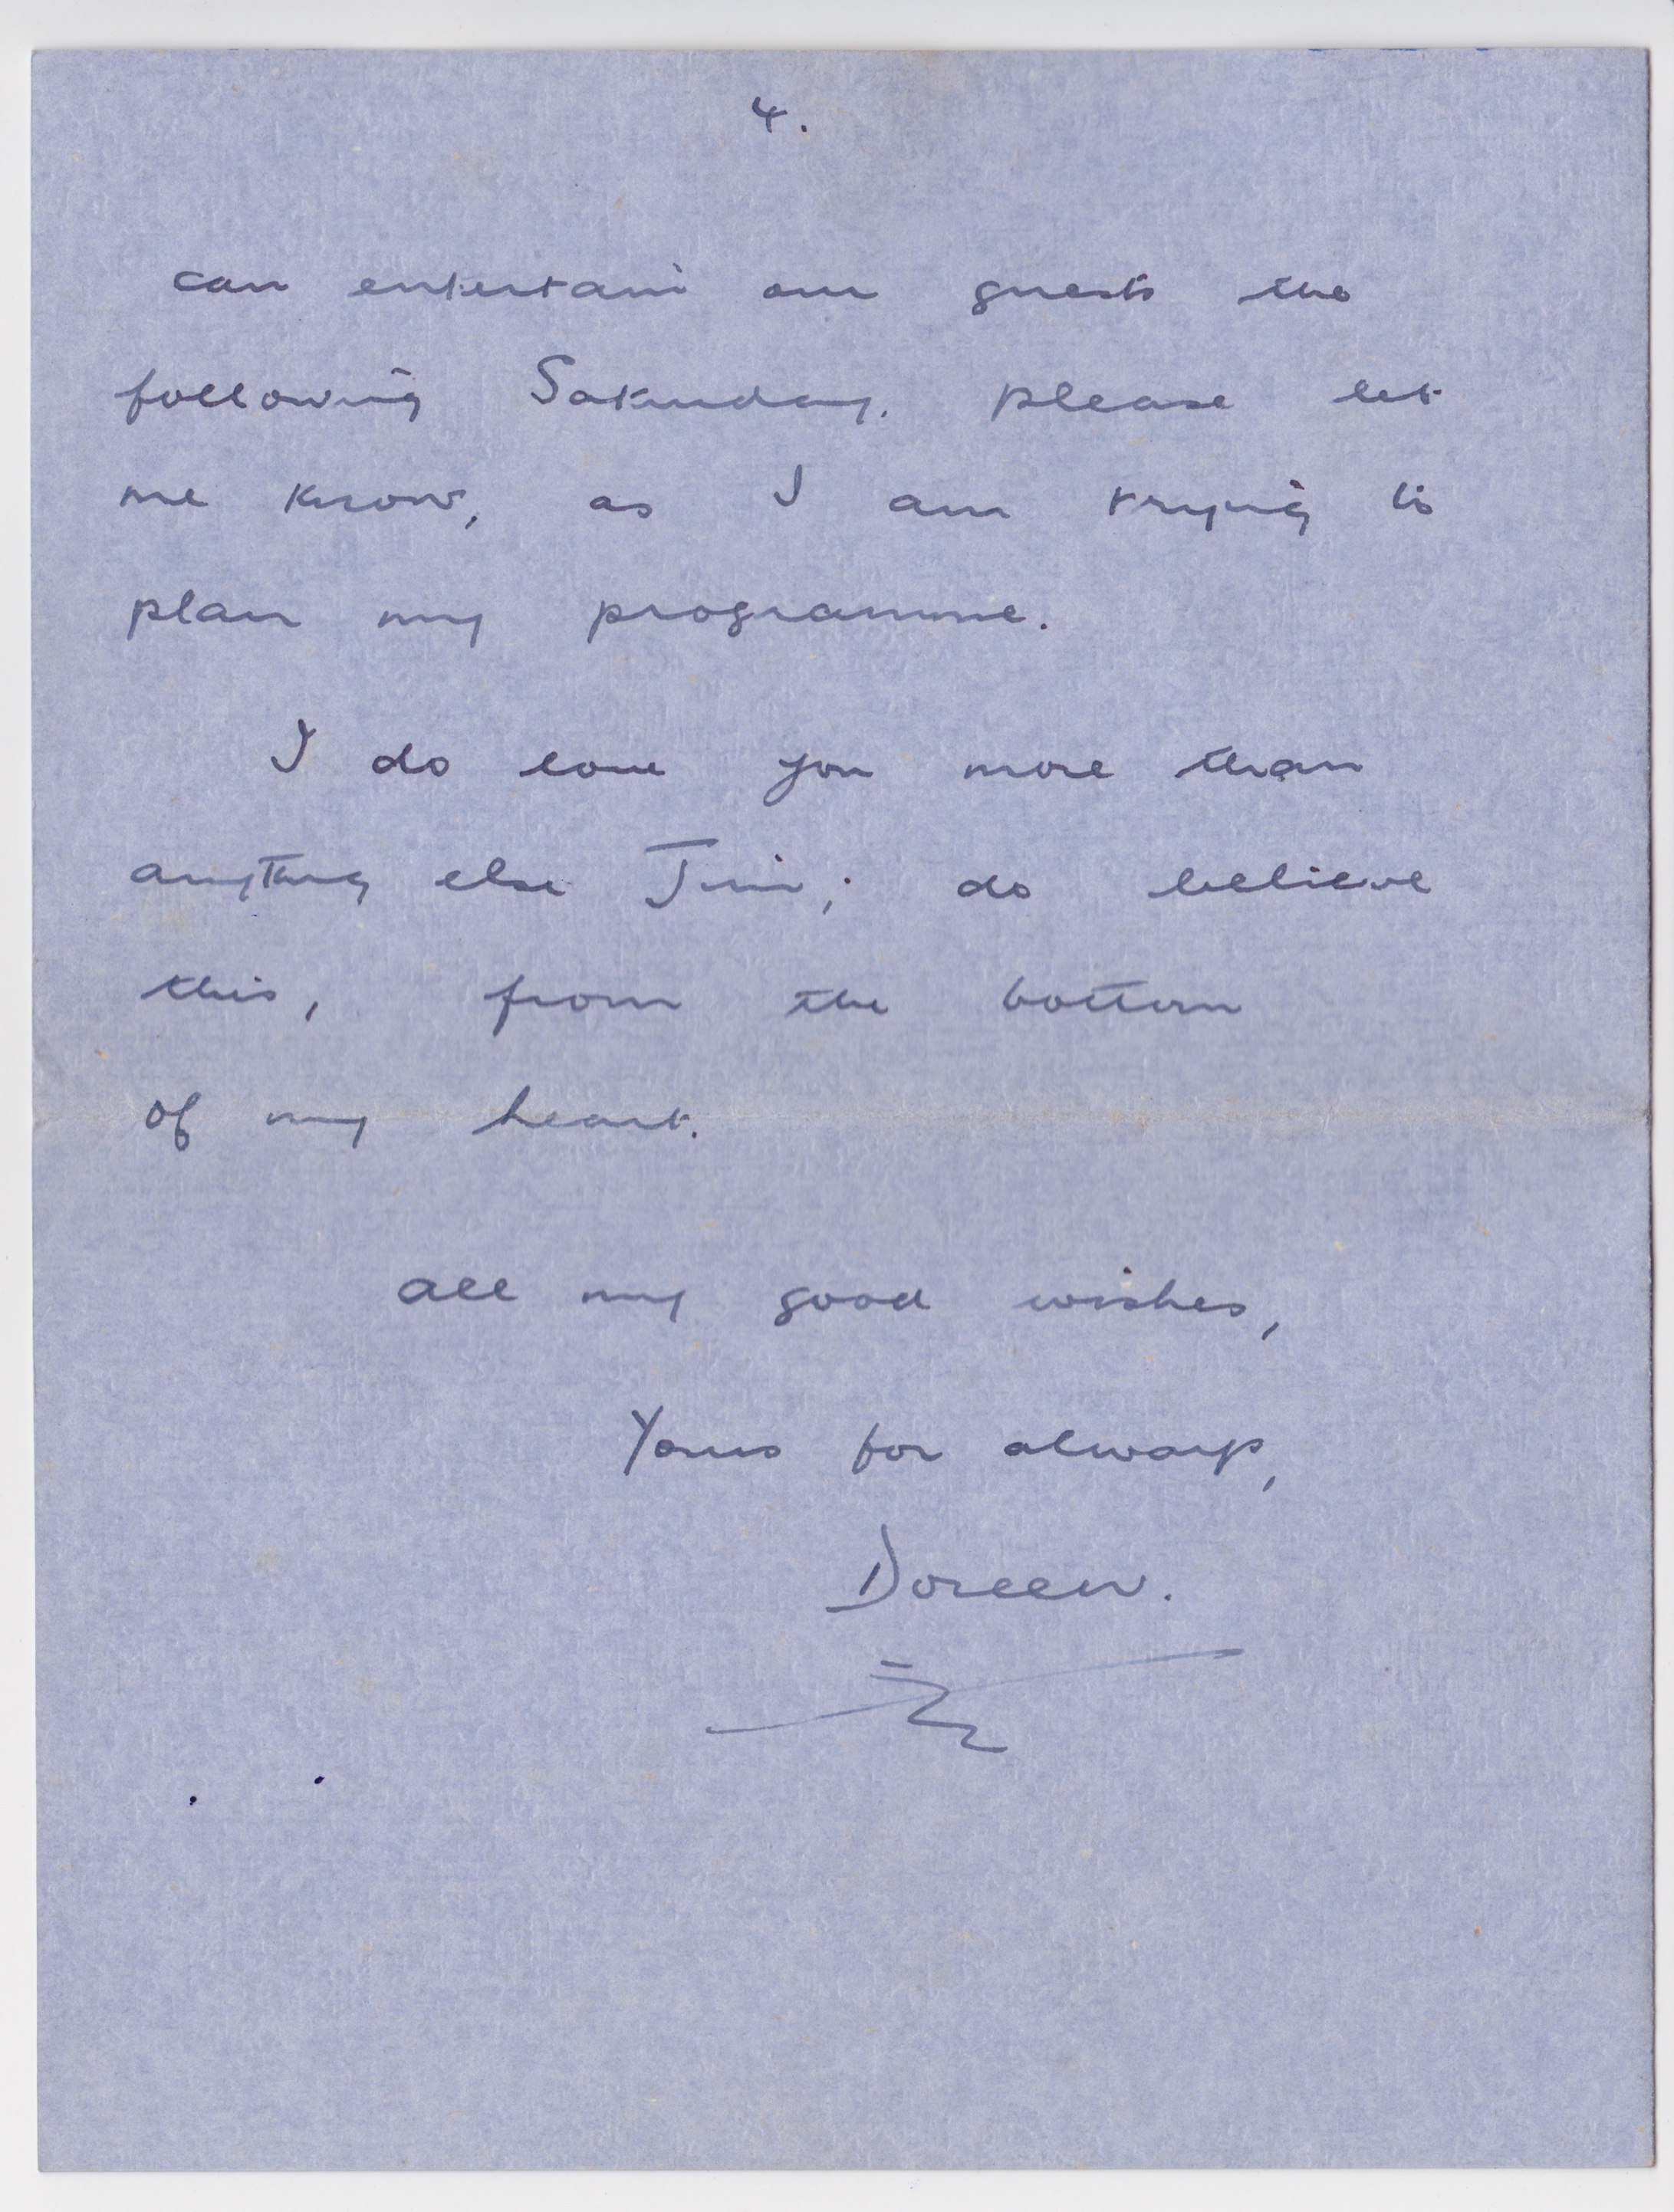 4.
can entertain our guests the
following Saturday. please let
me know, as I am trying to
plan my programme.
I do love you more than
anything else Jim; do believe
this, from the bottom
of my heart.
all my good wishes,
Yours for always,
Doreen.